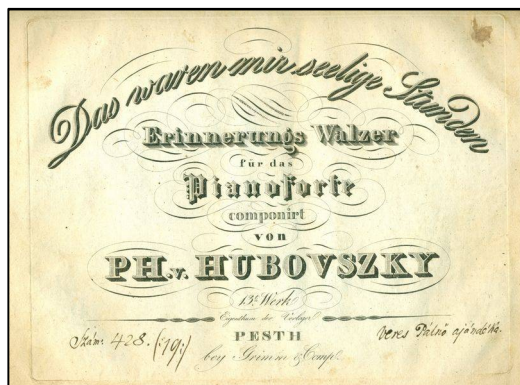 Das waren mir seelige Stunden
Erinnerungs Walzer
für das
Pianoforte
componirt
von
PH. v. HUBOVSZKY
13.tes Werk
Eigenthum der Verleger
PESTH
bey Grimm & Comp.
Szám: 428. (:19:)
Veres Pálné ajándéka.